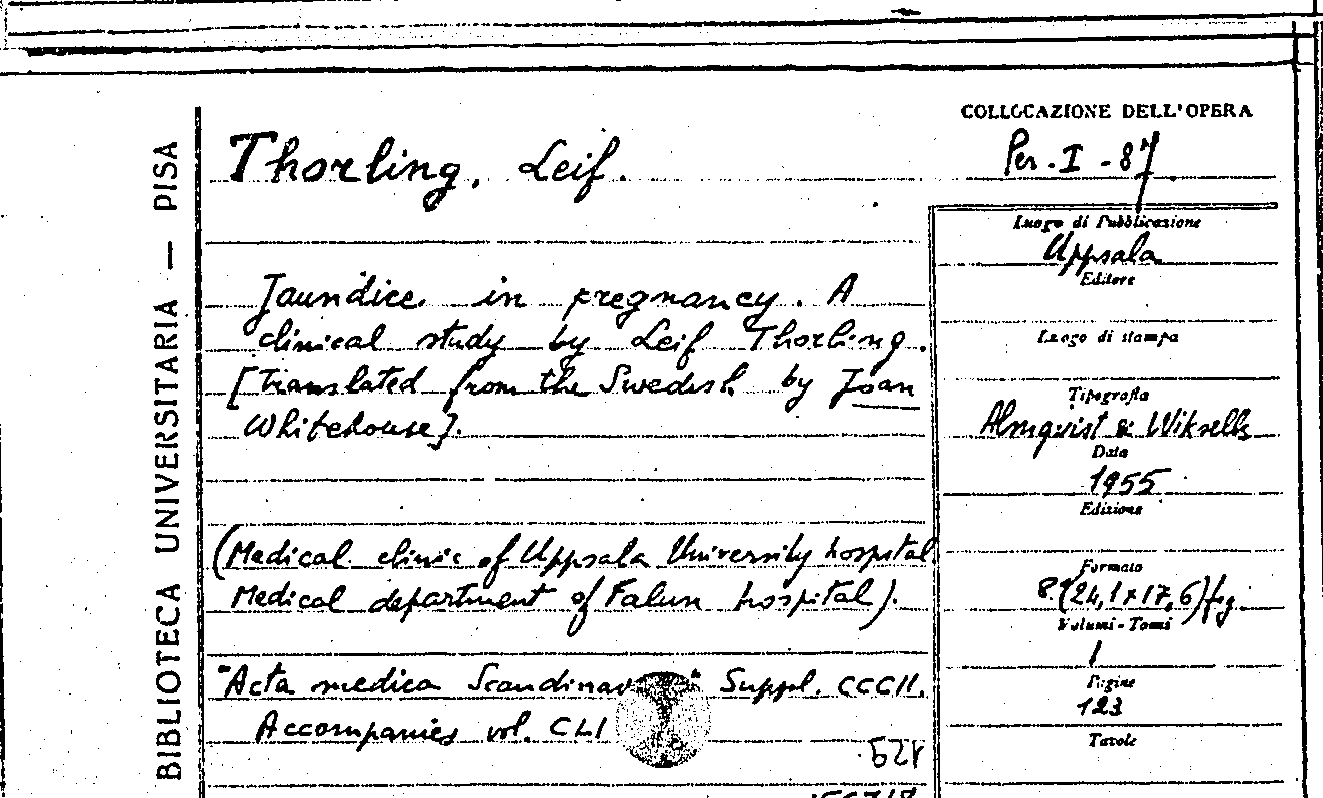 BIBLIOTECA UNIVERSITARIA — PISA
COLLOCAZIONE DELL'OPERA
Per. I - 87
Thorling, Leif.
Jaundice in pregnancy. A
clinical study by Leif Thorling.
[Translated from the Swedish by Joan
Whitehouse].
(Medical clinic of Uppsala University hospital
Medical department of Falun hospital).
"Acta medica Scandinav " Suppl. CCCII.
Accompanies vol. CLI
Luogo di Pubblicazione
Uppsala
Editore
Luogo di stampa
Tipografia
Almqvist & Wiksells
Data
1955
Edizione
Formato
8º(24,1x17,6) fig.
Volumi - Tomi
1
Pagine
123
Tavole